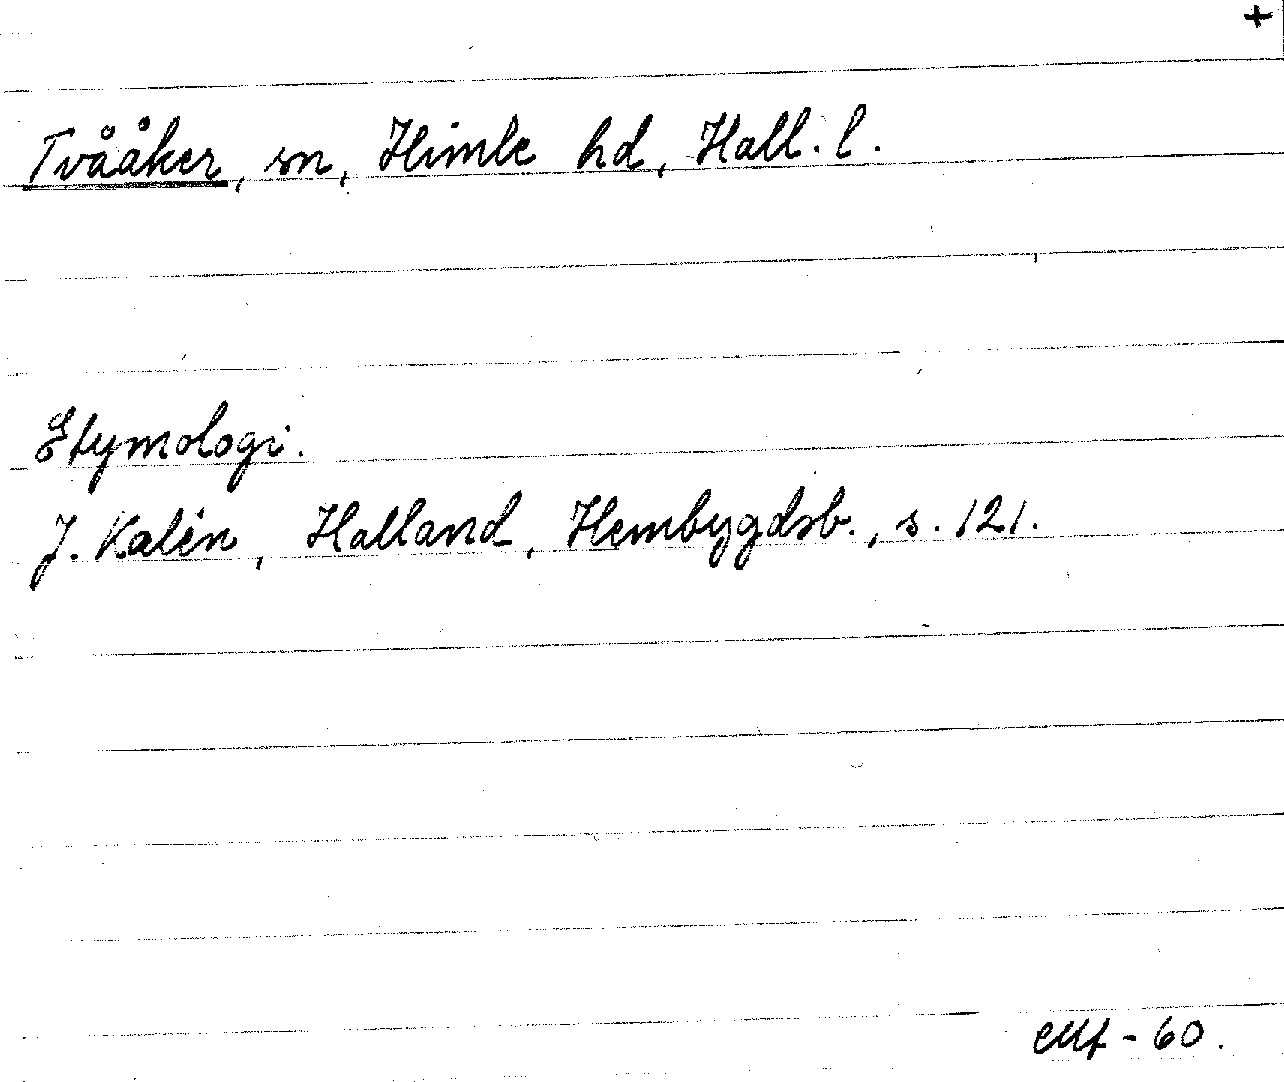 +
Tvååker, sn, Himle hd, Hall. l.
Etymologi.
J. Kalén, Halland, Hembygdsb., s. 121.
-60.